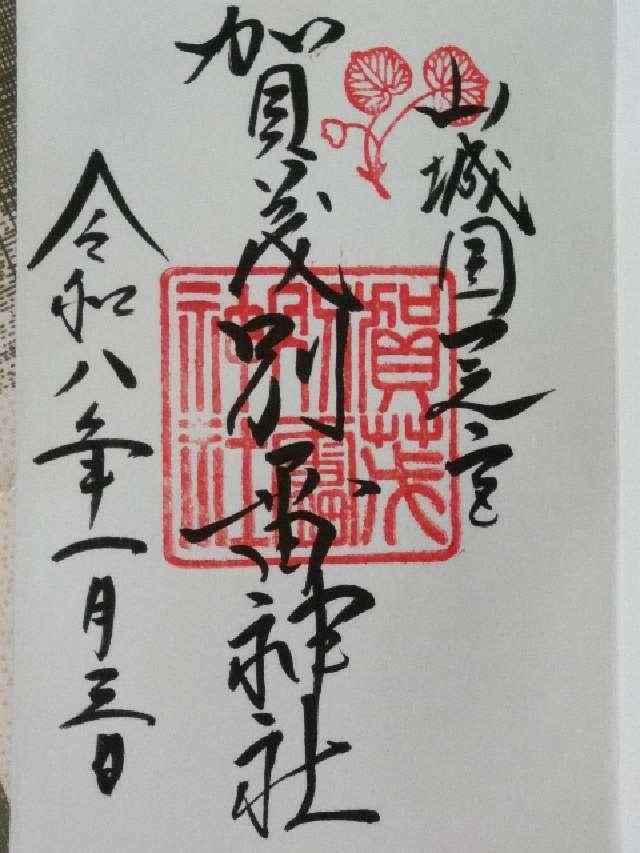 山城国一之宮
賀茂別雷神社
令和八年一月三日
賀茂
別雷
神社